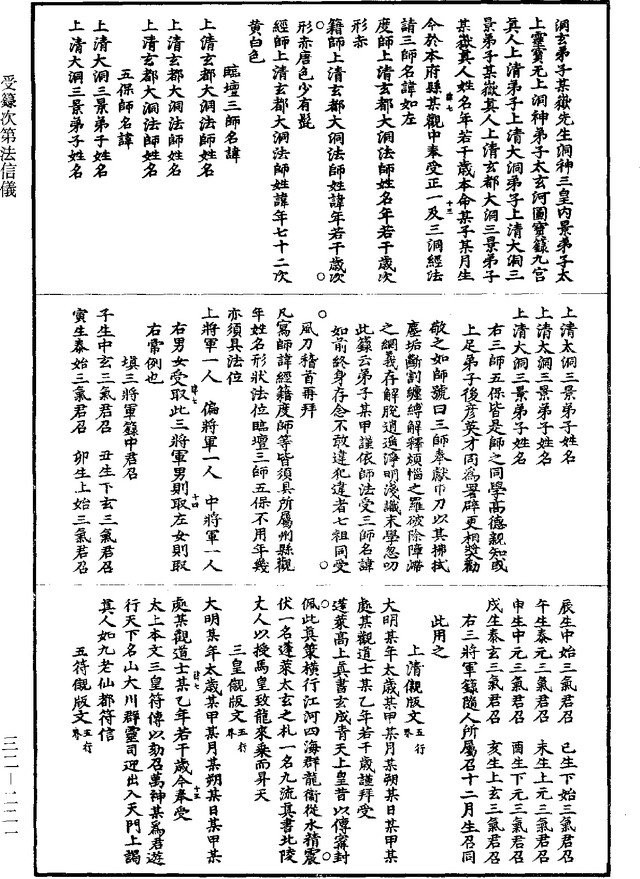 洞玄弟子某嶽先生洞神三皇內景弟子太
上靈寶无上洞神弟子太玄河圖寶籙九宮
真人上清弟子上清大洞弟子上清大洞三
景弟子某嶽真人上清玄都大洞三景弟子
某嶽真人姓名年若干歲本命某子某月生
今於本府縣某觀中奉受正一及三洞經法
請三師名諱如左
度師上清玄都大洞法師姓名年若干歲次
形赤
籍師上清玄都大洞法師姓諱年若干歲次
形赤唐色少有髭
經師上清玄都大洞法師姓諱年七十二次
黃白色
臨壇三師名諱
上清玄都大洞法師姓名
上清玄都大洞法師姓名
上清玄都大洞法師姓名
五保師名諱
上清大洞三景弟子姓名
上清大洞三景弟子姓名
上清太洞三景弟子姓名
上清大洞三景弟子姓名
上清大洞三景弟子姓名
右三師五保皆是師之同學高德親知或
上足弟子後彥英才同為署辟更相獎勸
敬之如師號曰三師奉獻巾刀以其拂拭
塵垢斷割纏縛解釋煩惱之羅破除障滯
之網義存解脫逍遙淨明淺識末學忽叨
此籙云弟子某甲謹依師法受三師名諱
如前終身存念不敢違犯違者七祖同受
風刀稽首再拜
凡寫師諱經籍度師等皆須具所屬州縣觀
年姓名形狀法位臨壇三師五保不用年幾
亦須具法位
上將軍一人 偏將軍一人 中將軍一人
右男女受取此三將軍男則取左女則取
右常例也
填三將軍籙中君召
子生中玄三氣君召 丑生下玄三氣君召
寅生泰始三氣君召 卯生上始三氣君召
辰生中始三氣君召 巳生下始三氣君召
午生泰元三氣君召 未生上元三氣君召
申生中元三氣君召 酉生下元三氣君召
戌生泰玄三氣君召 亥生上玄三氣君召
右三將軍籙隨人所屬召十二月生召同
此用之
上清儭版文五行
大明某年太歲某甲某月某朔某日某甲某
處某觀道士某乙年若干歲謹拜受
蓬萊高上真書玄成青天上皇昔以傳甯封
佩此真策橫行江河四海群龍銜從水精震
伏一名蓬萊太玄之札一名九流真書北陵
丈人以授馬皇致龍來乘而昇天
三皇儭版文五行
大明某年太歲某甲某月某朔某日某甲某
處某觀道士某乙年若干歲今奉受
太上本文三皇符傳以劾召萬神某為君遊
行天下名山大川群靈司迎出入天門上謁
真人如九老仙都符信
五符儭版文行
受籙次第法信儀
三二—二二一